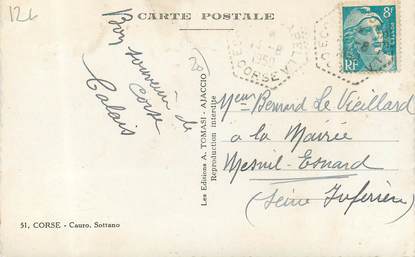 126
CARTE POSTALE
Bon souvenir de
Corse
Calais
1950
CORSE
8F
RF
Les Editions A. TOMASI - AJACCIO
Reproduction interdite
Bernard Le Vieillard
a la Mairie
Mesnil-Esnard
(Seine Inférieure)
51, CORSE - Cauro. Sottano